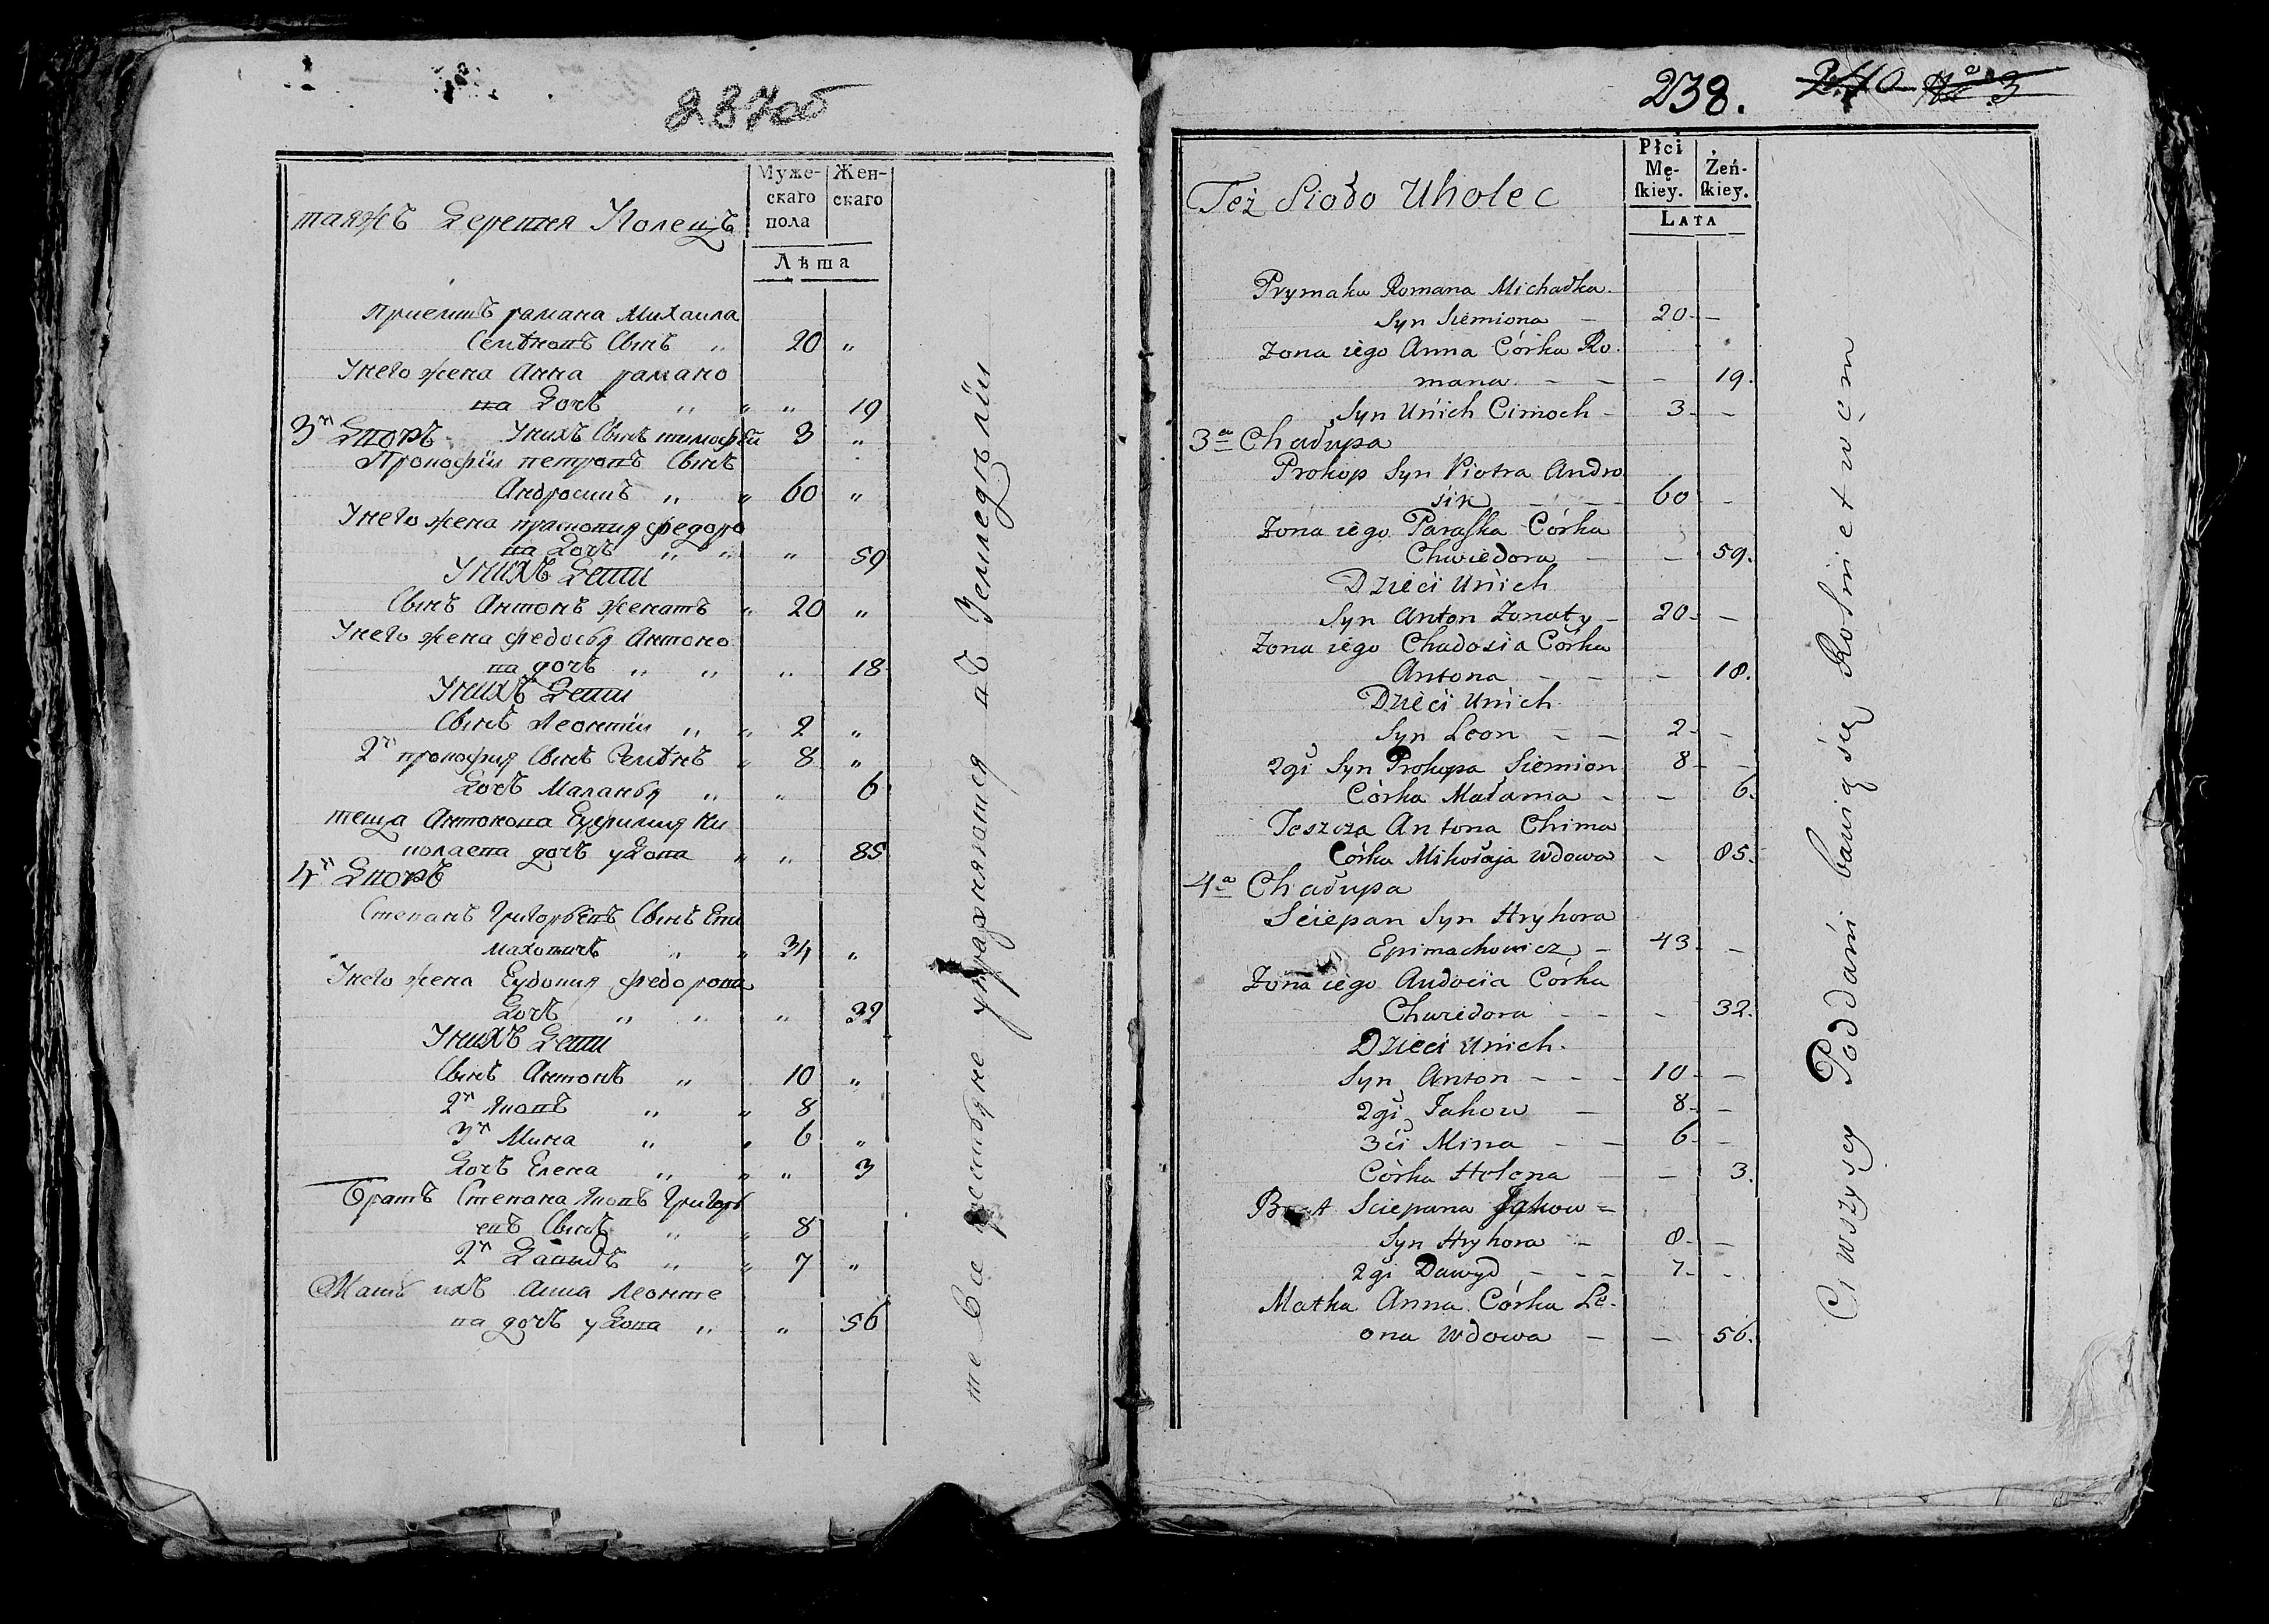 237об
Муже-
скаго
пола
Жен-
скаго
Лѣта
таяжъ Деревня Уголецъ
Приемшъ рамана Михаила
Семѣновъ Сынъ „ 20 „
Унего жена Анна рамано
ва Дочь „ „ „ 19
3й Дворъ Унихъ Сынъ тимофѣй 3 „
Прокофіи петровъ Сынъ
Андросикъ „ „ 60 „
Унего жена прасковия федоро
ва Дочь „ „ „ 59
Унихъ Дети
Сынъ Антонъ женатъ „ 20 „
Унего жена федосья Антоно
ва дочь „ „ „ 18
Унихъ Дети
Сынъ Леонтіи „ „ 2 „
2й прокофия Сынъ Семѣнъ „ 8 „
Дочь Маланья „ „ 6
теща Антонова Ефимия Ни
колаева дочь удова „ „ 85
4й Дворъ
Степанъ Григорьевъ Сынъ Епи
маховичъ „ „ 34 „
Унего жена Еудокия федорова
Дочь „ „ „ 32
Унихъ Дети
Сынъ Антонъ „ 10 „
2й Яковъ „ „ 8
3й Мина „ „ 6 „
Дочь Елена „ „ „ 3
братъ Степана Яковъ Григорь
евъ Сынъ „ „ 8
2й Давыдъ „ „ 7 „
Мать ихъ Анна Леонте
ва дочь удова „ „ 56
те все упражняются въ Земледѣліи
238.
Płci
Mę-
ſkiey.
Żeń-
ſkiey.
LATA
Też Sioło Uholec
Prymaka Romana Michałka
Syn Siemiona – 20 –
Zona iego Anna Córka Ro-
mana – – – 19.
Syn Unich Cimoch – 3 –
3a Chałupa
Prokop Syn Piotra Andro
sik – – 60 –
Zona iego Paraſka Córka
Chwiedora – – 59.
Dzieci Unich
Syn Anton Zonaty – 20 –
Zona iego Chadosia Córka
Antona – – – 18.
Dzieci Unich
Syn Leon – – 2 –
2gi Syn Prokopa Siemion 8 –
Córka Małania – – 6.
Teszcza Antona Chima
Córka Mikołaja Wdowa – 85.
4a Chałupa
Sciepan Syn Hryhora
Epimachowicz – 43 –
Zona iego Audocia Córka
Chwiedora – – – 32.
Dzieci Unich.
Syn Anton – – – 10 –
2gi Jakow – 8 –
3ci Mina – – 6 –
Córka Helena – – 3.
Brat Sciepana Jakow =
Syn Hryhora – 8 –
2gi Dawyd – – – 7 –
Matka Anna Córka Le-
ona Wdowa – – 56.
Ci wszyscy Poddani bawią się Rolnictwem